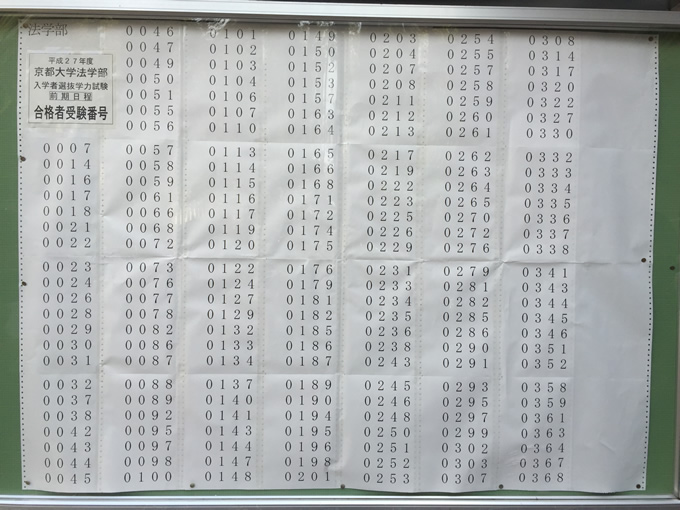 法学部
平成27年度
京都大学法学部
入学者選抜学力試験
前期日程
合格者受験番号
0007
0014
0016
0017
0018
0021
0022
0023
0024
0026
0028
0029
0030
0031
0032
0037
0038
0042
0043
0044
0045
0046
0047
0049
0050
0051
0055
0056
0057
0058
0059
0061
0066
0068
0072
0073
0076
0077
0078
0082
0086
0087
0088
0089
0092
0095
0097
0098
0100
0101
0102
0103
0104
0106
0107
0110
0113
0114
0115
0116
0117
0119
0120
0122
0124
0127
0129
0132
0133
0134
0137
0140
0141
0143
0144
0147
0148
0149
0150
0152
0153
0157
0163
0164
0165
0166
0168
0171
0172
0174
0175
0176
0179
0181
0182
0185
0186
0187
0189
0190
0194
0195
0196
0198
0201
0203
0204
0207
0208
0211
0212
0213
0217
0219
0222
0223
0225
0226
0229
0231
0233
0234
0235
0236
0238
0243
0245
0246
0248
0250
0251
0252
0253
0254
0255
0257
0258
0259
0260
0261
0262
0263
0264
0265
0270
0272
0276
0279
0281
0282
0285
0286
0290
0291
0293
0295
0297
0299
0302
0303
0307
0308
0314
0317
0320
0322
0327
0330
0332
0333
0334
0335
0336
0337
0338
0341
0343
0344
0345
0346
0351
0352
0358
0359
0361
0363
0364
0367
0368